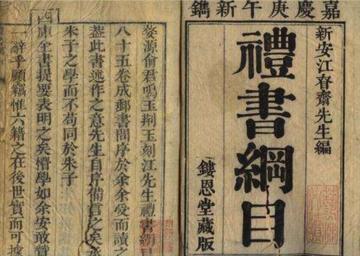 嘉慶庚午新鐫
新安江齋先生編
禮書綱目
鏤恩堂藏版
婺源俞君鳴玉荆玉刻江先生禮書綱目
八十五卷成郵書問序於余余受而讀之
蓋此書述作之意先生自序備言之矣
朱子之學而不苟同於朱子
庫全書提要表明之矣學如余安敢贅
一辭乎顧竊惟六籍之在後世實而可據